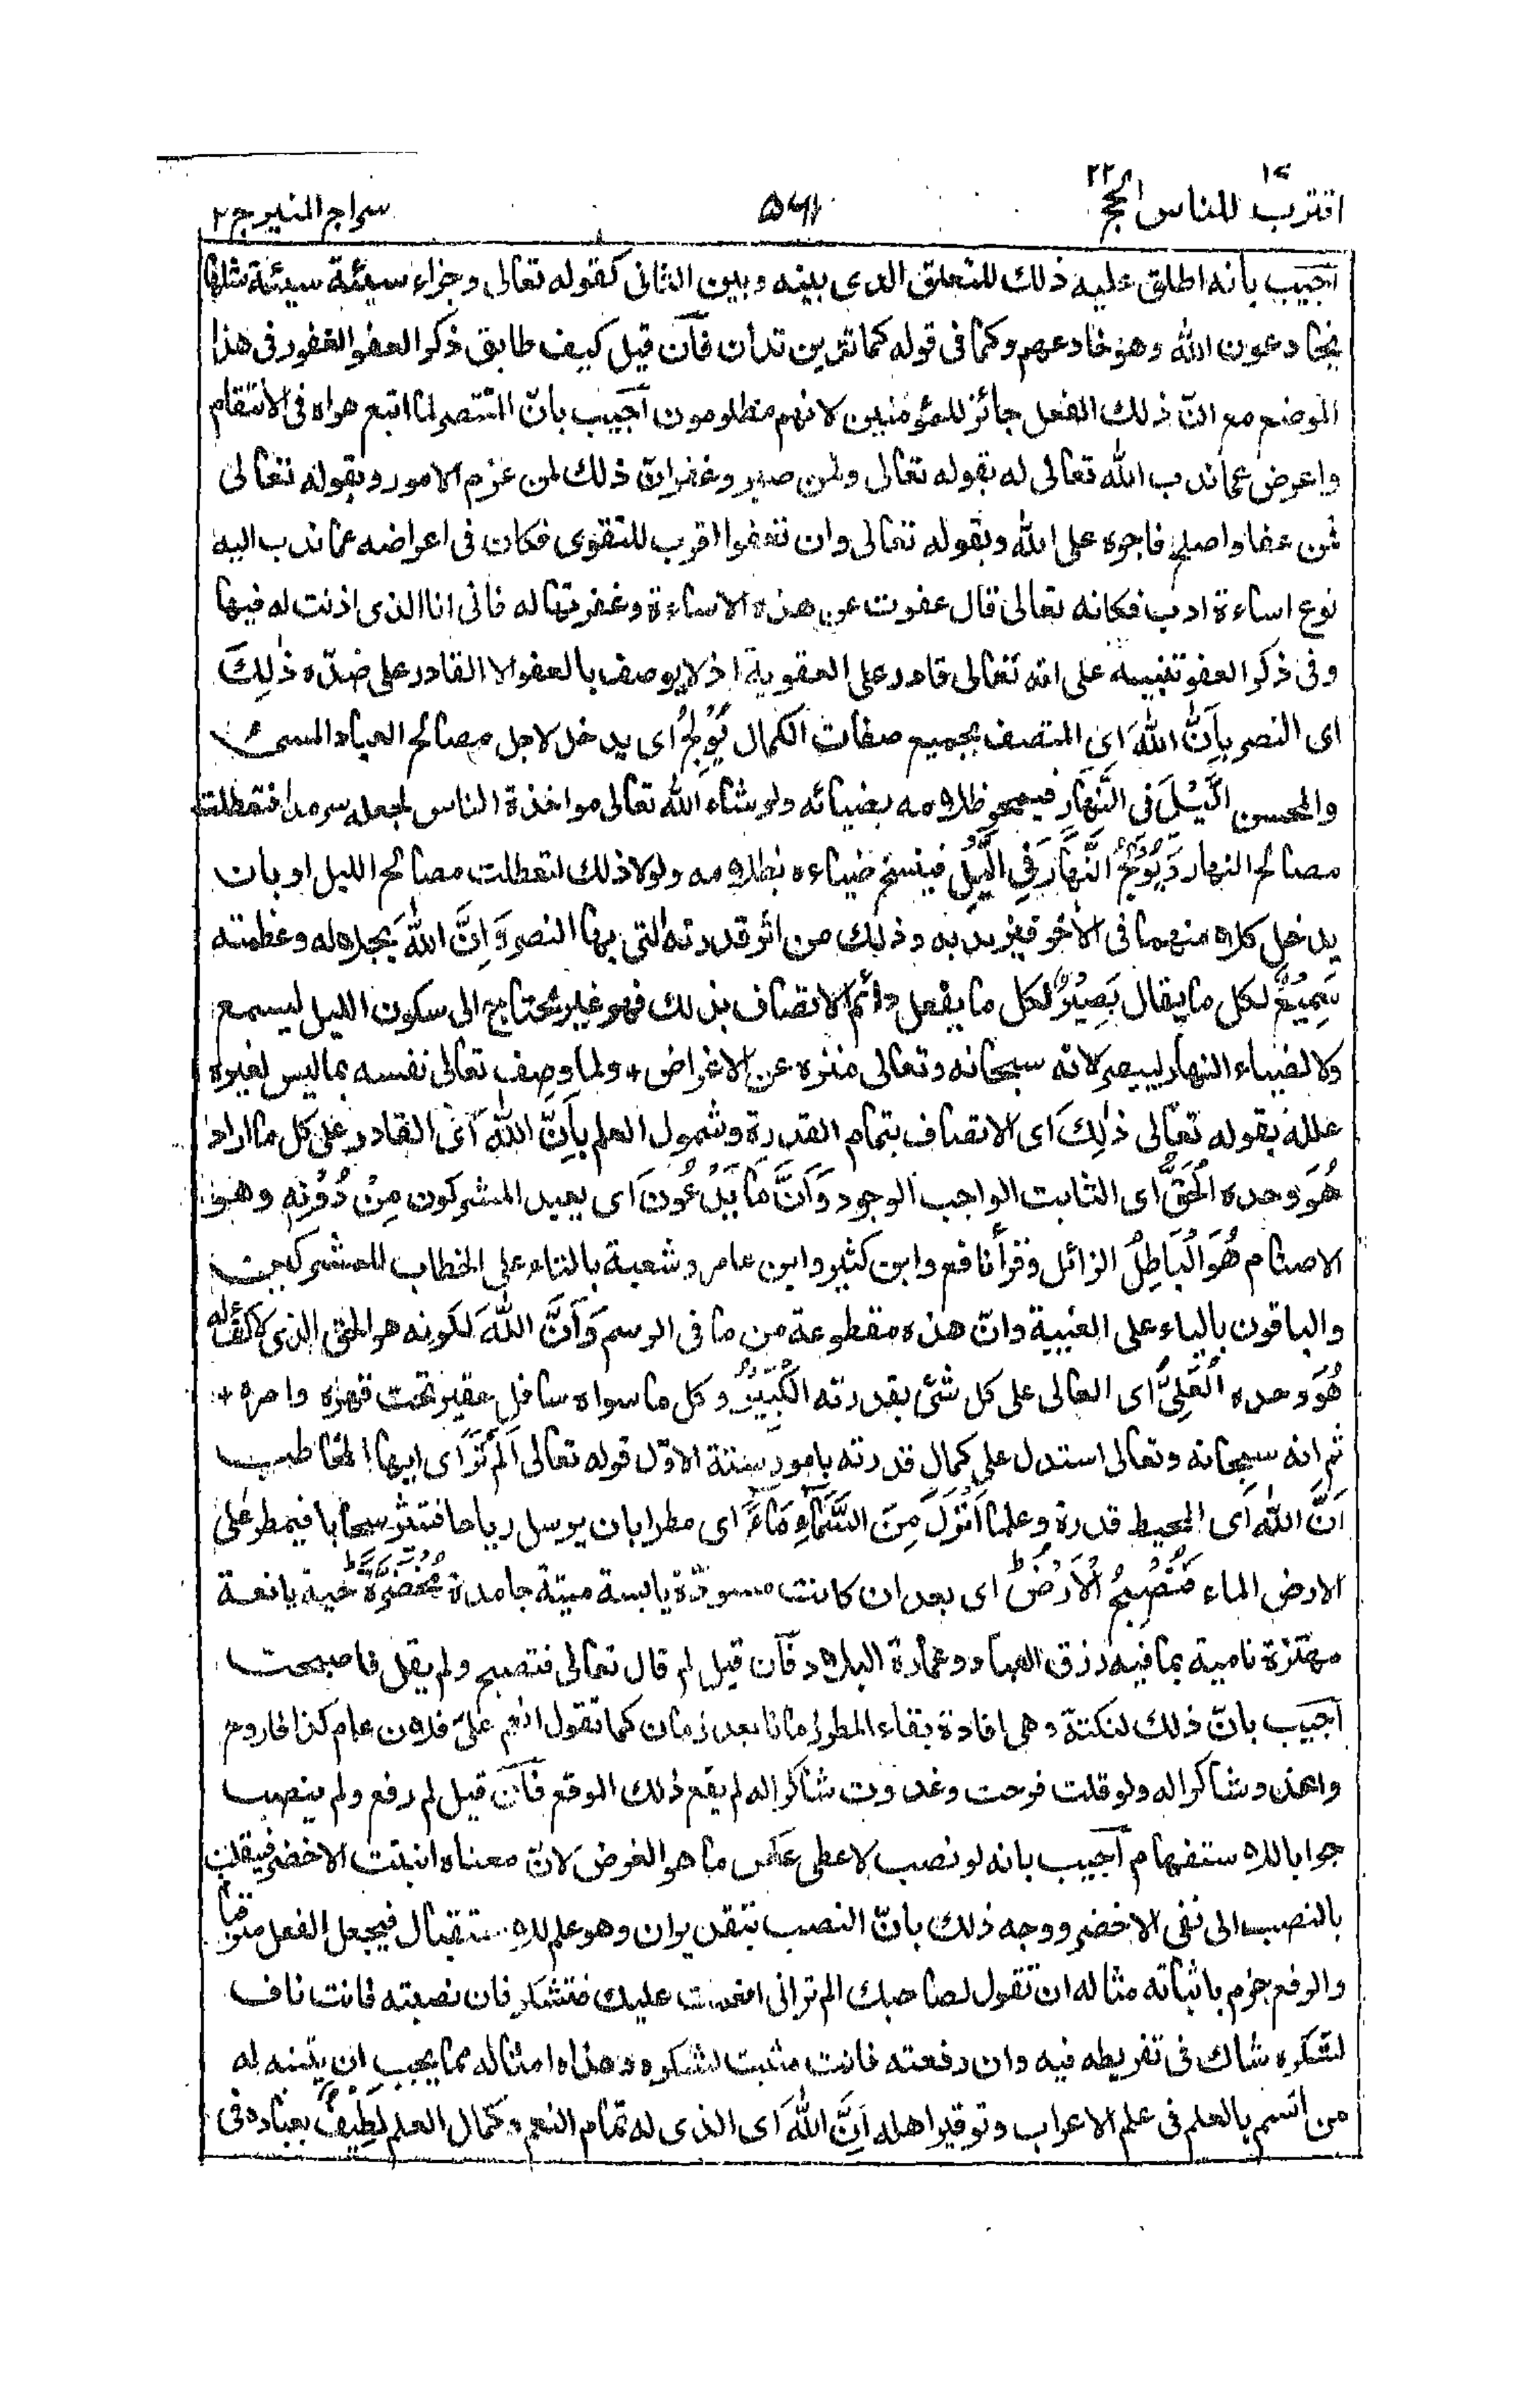 اقترب للناس١٧ الحج٢٢
٥٦١
سراج المنير ج ٢
اجيب بانه اطلق عليه ذلك للتعلق الذى بينه وبين الثانى كقوله تعالى وجزاء سيئة سيئة مثلها
يخادعون الله وهو خادعهم وكما فى قوله كما تدين تدان فان قيل كيف طابق ذكر العفو الغفور فى هذا
الموضع مع انّ ذلك الفعل جائز للمؤمنين لانهم مظلومون اجيب بانّ المنتصر لما اتبع هواه فى الانتقام
واعرض عما ندب الله تعالى له بقوله تعالى ولمن صبر وغفر انّ ذلك لمن عزم الامور وبقوله تعالى
فمن عفا واصلح فاجره على الله وبقوله تعالى وان تعفوا اقرب للتقوى فكان فى اعراضه عما ندب اليه
نوع اساءة ادب فكانه تعالى قال عفوت عن هذه الاساءة وغفرتها له فانى انا الذى اذنت له فيها
وفى ذكر العفو تنبيه على انه تعالى قادر على العقوبة اذ لا يوصف بالعفو الا القادر على ضدّه ذٰلِكَ
اى النصر بِاَنَّ اللّٰهَ اى المتصف بجميع صفات الكمال يُوْلِجُ اى يدخل لاجل مصالح العباد المسىء
والمحسن الَّيْلَ فِى النَّهَارِ فيمحو ظلامه بضيائه ولو شاء الله تعالى مواخذة الناس لجعله سرمدا فتعطلت
مصالح النهار وَيُوْلِجُ النَّهَارَ فِى الَّيْلِ فينسخ ضياءه بظلامه ولولا ذلك لتعطلت مصالح الليل او بان
يدخل كلا منهما فى الاخر فيزيد به وذلك من اثر قدرته التى بها النصر وَاِنَّ اللّٰهَ بجلاله وعظمته
سَمِيْعٌ لكل ما يقال بَصِيْرٌ لكل ما يفعل دائم الاتصاف بذلك فهو غير محتاج الى سكون الليل ليسمع
ولا لضياء النهار ليبصر لانه سبحانه وتعالى منزه عن الاغراض + ولما وصف تعالى نفسه بما ليس لغيره
علله بقوله تعالى ذٰلِكَ اى الاتصاف بتمام القدرة وشمول العلم بِاَنَّ اللّٰهَ اى القادر على كل ما اراد
هُوَ وحده الْحَقُّ اى الثابت الواجب الوجود وَاَنَّ مَا يَدْعُونَ اى يعبد المشركون مِنْ دُوْنِهٖ وهو
الاصنام هُوَ الْبَاطِلُ الزائل وقرأ نافع وابن كثير وابن عامر وشعبة بالتاء على الخطاب للمشركين
والباقون بالياء على الغيبة وانّ هذه مقطوعة من ما فى الرسم وَاَنَّ اللّٰهَ لكونه هو الحق الذى لا كفؤ له
هُوَ وحده الْعَلِىُّ اى العالى على كل شئ بقدرته الْكَبِيْرُ وكل ما سواه سافل حقير تحت قهره وامره +
ثم انه سبحانه وتعالى استدل على كمال قدرته بامور ستة الاوّل قوله تعالى اَلَمْ تَرَ اى ايها المخاطب
اَنَّ اللّٰهَ اى المحيط قدرة وعلما اَنْزَلَ مِنَ السَّمَآءِ مَآءً اى مطرا بان يرسل رياحا فتثير سحابا فيمطر على
الارض الماء فَتُصْبِحُ الْاَرْضُ اى بعد ان كانت مسودّة يابسة ميتة جامدة مُخْضَرَّةً حية يانعة
مهتزة نامية بما فيه رزق العباد وعمارة البلاد فان قيل لم قال تعالى فتصبح ولم يقل فاصبحت
اجيب بانّ ذلك لنكتة وهى افادة بقاء المطر زمانا بعد زمان كما تقول انعم علىّ فلان عام كذا فاروح
واغدو شاكرا له ولو قلت فرحت وغدوت شاكرا له لم يقع ذلك الموقع فان قيل لم رفع ولم ينصب
جوابا للاستفهام اجيب بانه لو نصب لاعطى عكس ما هو الغرض لانّ معناه اثبات الاخضر فينقلب
بالنصب الى نفى الاخضر ووجه ذلك بانّ النصب بتقدير ان وهو علم للاستقبال فيجعل الفعل مترقبا
والرفع جزم باثباته مثاله ان تقول لصاحبك الم ترانى انعمت عليك فتشكر فان نصبته فانت ناف
لشكره شاك فى تفريطه فيه وان رفعته فانت مثبت لشكره وهذا وامثاله مما يجب ان يتنبه له
من اتسم بالعلم فى علم الاعراب وتوقير اهله اِنَّ اللّٰهَ اى الذى له تمام النعم وكمال العلم لَطِيْفٌ بعباده فى